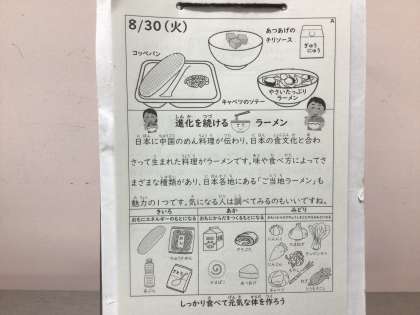 8/30(火)
A
あつあげの
チリソース
ぎゅう
にゅう
コッペパン
やさいたっぷり
ラーメン
キャベツのソテー
進化を続ける ラーメン
日本に中国のめん料理が伝わり、日本の食文化と合わ
さって生まれた料理がラーメンです。味や食べ方によってさ
まざまな種類があり、日本各地にある「ご当地ラーメン」も
魅力の1つです。気になる人は調べてみるのもいいですね。
きいろ あか みどり
おもにエネルギーのもとになる おもにからだをつくるもとになる
しっかり食べて元気な体を作ろう